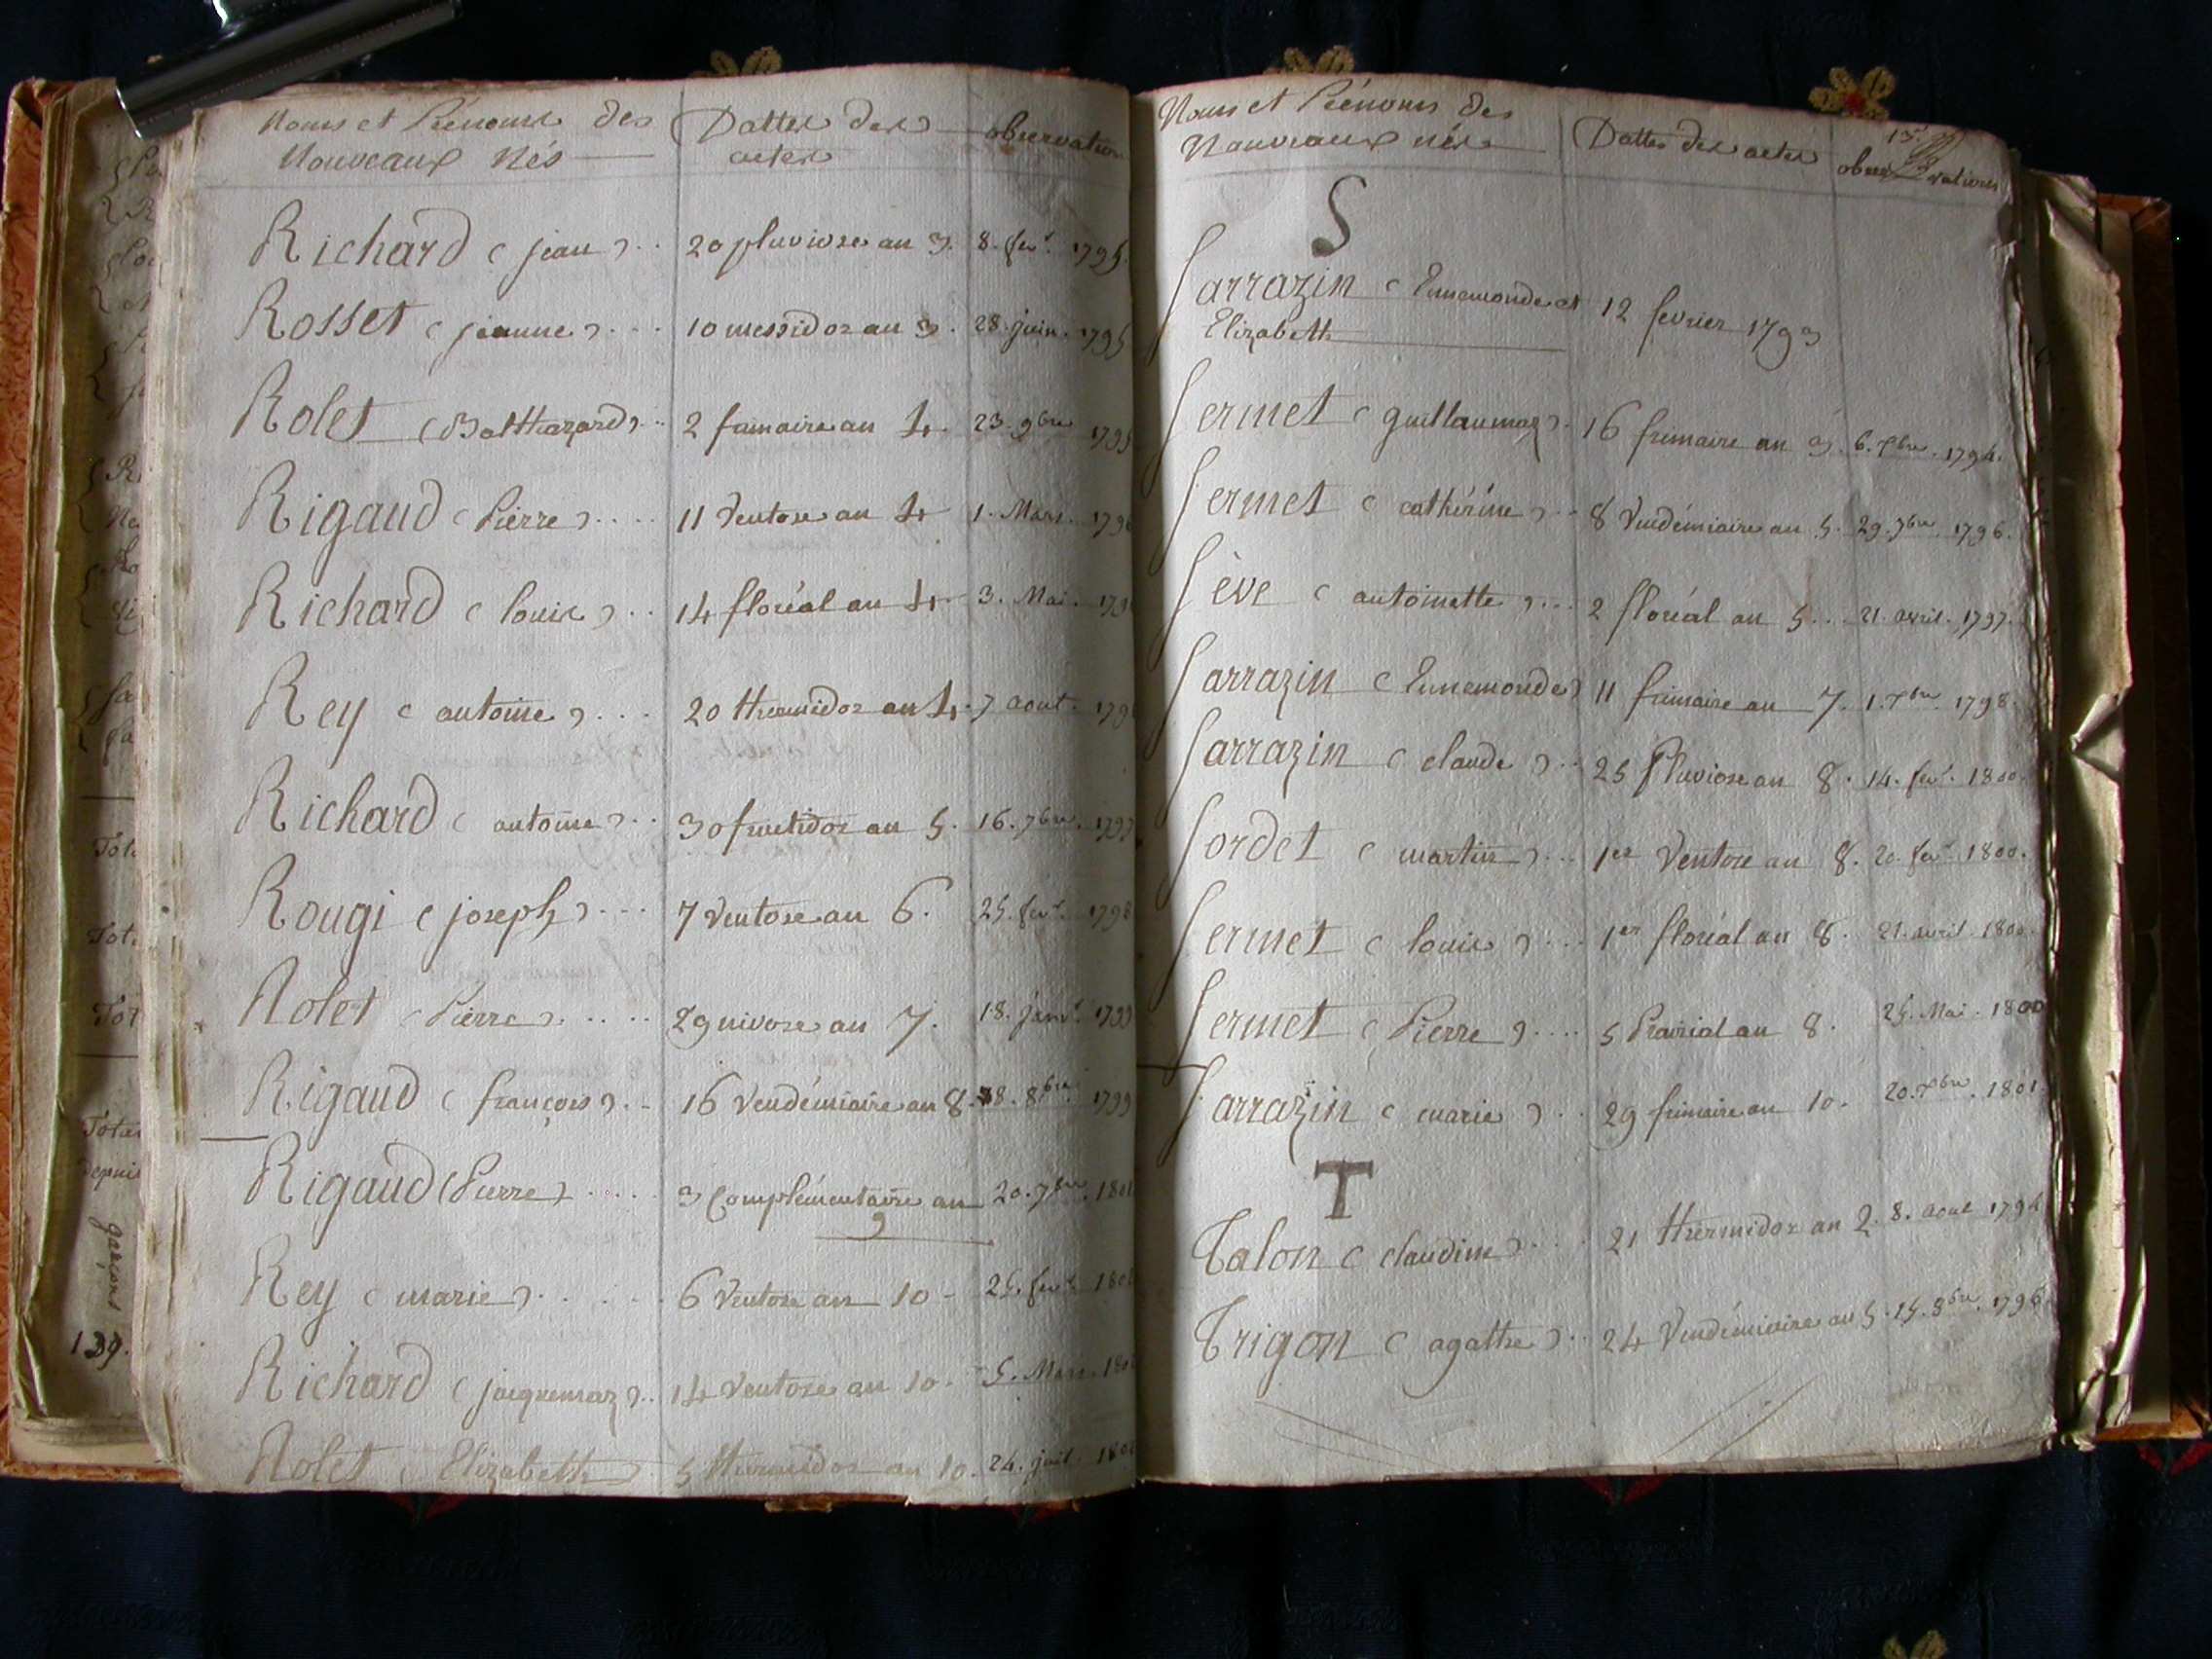 Noms et Prénoms des Dattes des observation
Nouveaux Nés actes
Richard ( jean ) . . 20 pluviose an 3. 8. fev.r 1795.
Rosset ( jeanne ) . . . 10 messidor an 3. 28. juin. 1795
Rolet ( Balthazard ) . . 2 frimaire an 4. 23. 9bre 1795
Rigaud ( Pierre ) . . . . 11 Ventose an 4 1. Mars. 179
Richard ( louis ) . . 14 floréal an 4. 3. Mai. 179
Rey ( antoine ) . . . 20 thermidor an 4. 7 aout. 179
Richard ( antoine ) . . 30 fructidor an 5. 16. 7bre. 1797
Rougi ( joseph ) . . . 7 Ventose an 6. 25. fev.r 1798
Rolet ( Pierre ) . . . . . 29 nivose an 7. 18. janv.r 1799
Rigaud ( françois ) . . 16 Vendémiaire an 8. 8. 8bre. 1799
Rigaud ( Pierre ) . . . . . 3 Complémentaire an 20. 7bre. 1801
9
Rey ( marie ) . . . . . 6 Ventose an 10 - 25. fev.r 180
Richard ( jacquemaz ) . . 14 Ventose an 10. 5. Mars. 180
Rolet ( Elizabeth ) . 5 thermidor an 10. 24. juil. 180
garçons
139.
Noms et Prénoms des
Nouveaux nés Dattes des actes observations
S
Sarrazin ( Ennemonde et 12 fevrier 1793
Elizabeth
Sermet ( guillaumaz ) . 16 frimaire an 3. 6. Xbre. 1794.
Sermet ( cathérine ) . . 8 Vendémiaire an 5. 29. 7bre. 1796.
Sève ( antoinette ) . . . 2 floréal an 5 . . . 21. avril. 1797.
Sarrazin ( Ennemonde ) 11 frimaire an 7. 1. Xbre. 1798.
Sarrazin ( claude ) . . 25 Pluviose an 8. 14. fev.r 1800.
Sordet ( martin ) . . . 1er Ventose an 8. 20. fev.r 1800.
Sermet ( louis ) . . . 1er floréal an 8. 21. avril. 1800.
Sermet ( Pierre ) . . . . 5 Prairial an 8. 25. Mai. 1800
Sarrazin ( marie ) . . 29 frimaire an 10. 20. Xbre. 1801.
T
Talon ( claudine ) . . . 21 thermidor an 2. 8. aout 1794
Trigon ( agathe ) . . 24 Vendémiaire an 5. 15. 8bre. 1796